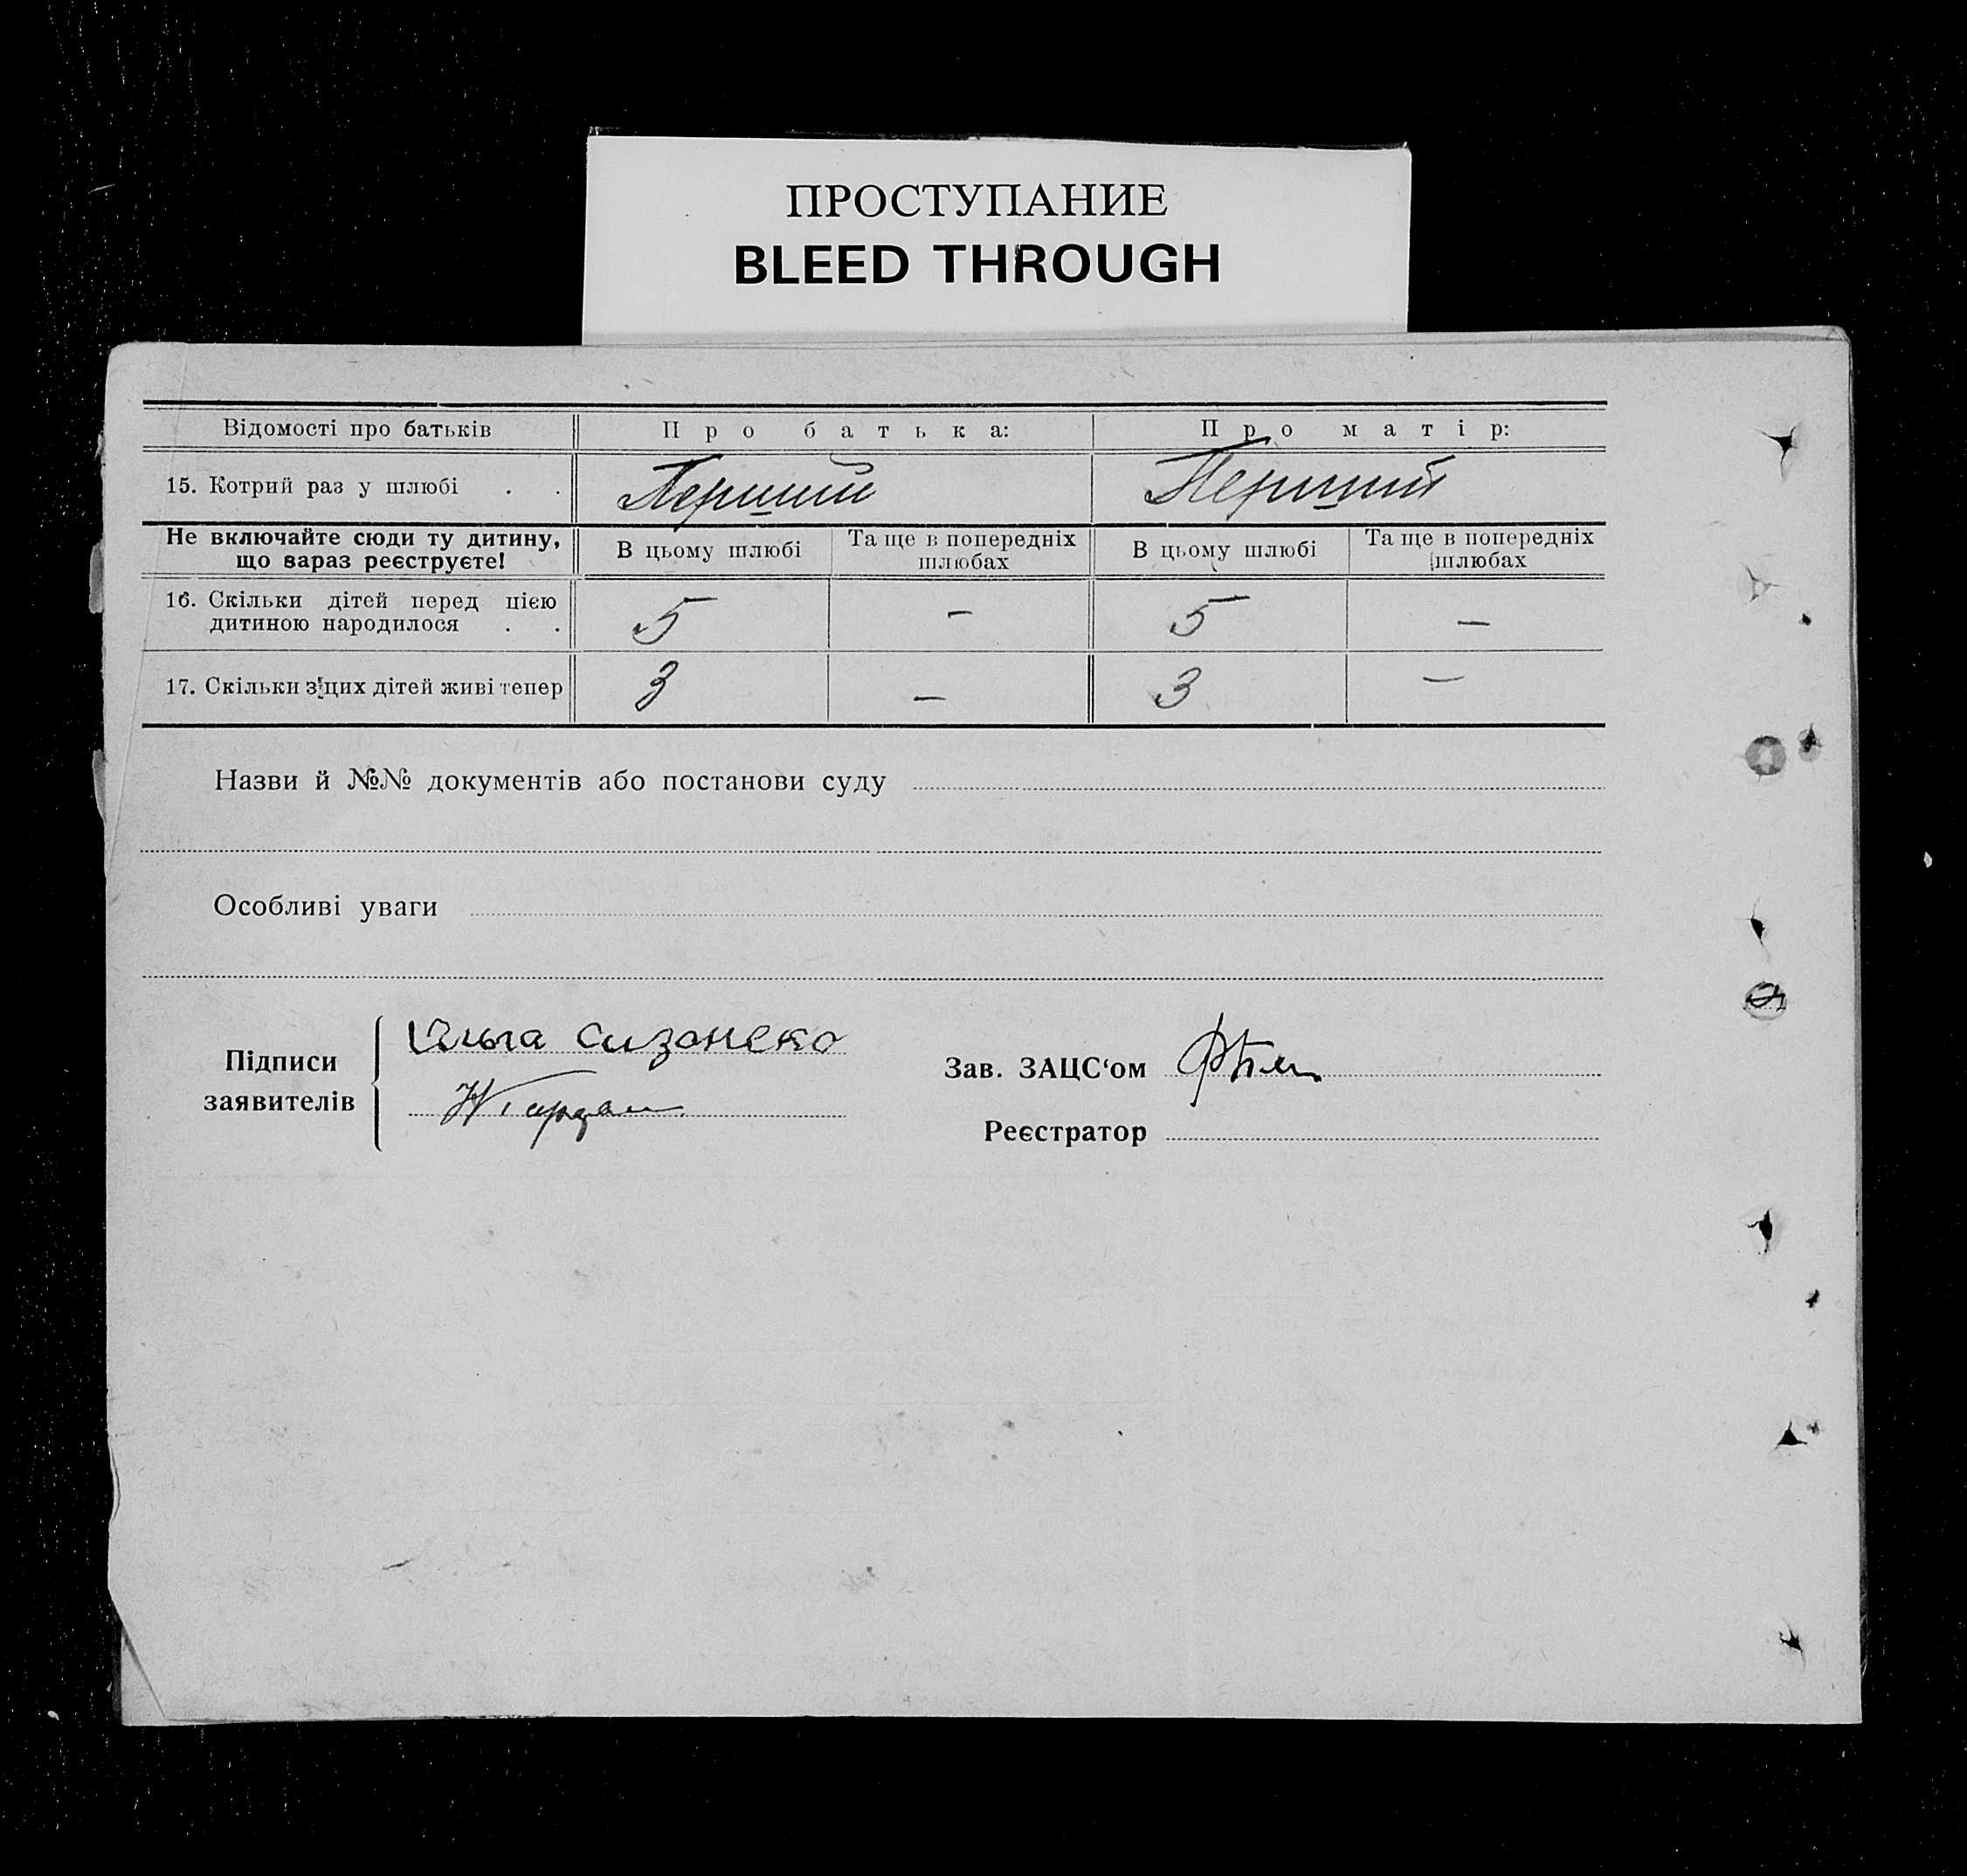 ПРОСТУПАНИЕ
BLEED THROUGH
Відомості про батьків Про батька: Про матір:
15. Котрий раз у шлюбі . . Перший Перший
Не включайте сюди ту дитину, що зараз реєструєте! В цьому шлюбі Та ще в попередніх шлюбах В цьому шлюбі Та ще в попередніх шлюбах
16. Скільки дітей перед цією
дитиною народилося . . 5 — 5 —
17. Скільки з цих дітей живі тепер 3 — 3 —
Назви й №№ документів або постанови суду
Особливі уваги
Підписи заявителів Ольга
Зав. ЗАЦС‘ом
Реєстратор